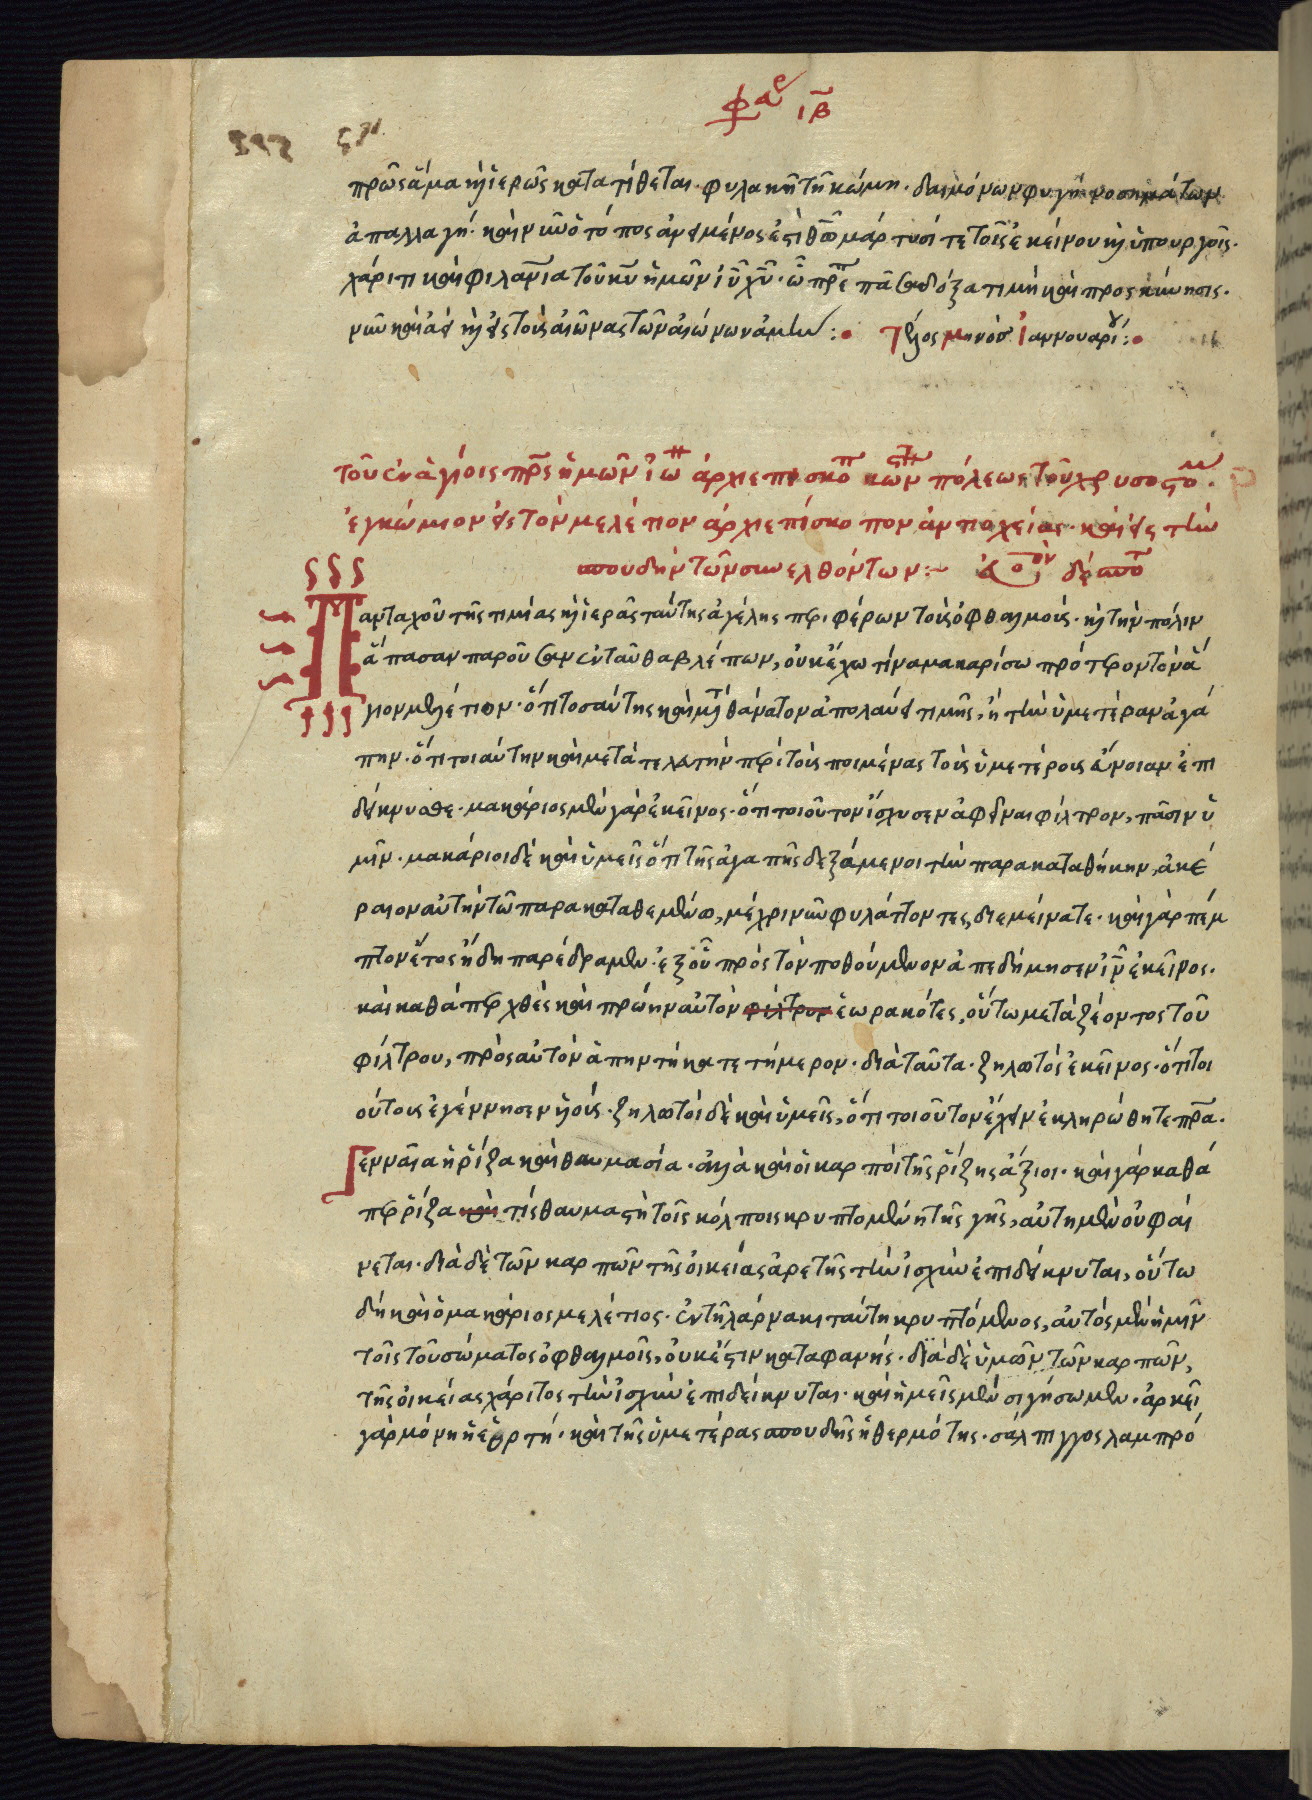 φα ιβ
πρῶς ἅμα καὶ ἱερῶς κατατίθεται· φυλακὴ τῆ κώμη· δαιμόνων φυγή· νοσημάτων
ἀπαλλαγή· καὶ νῦν ὁ τόπος ἀνειμένος ἐστὶ θῶ μάρτυσί τε τοῖς ἐκείνου καὶ ὑπουργοῖς·
χάριτι καὶ φιλανῖα τοῦ κυ ἡμῶν ιυ χυ· ὧ πρέπει πᾶσα δόξα τιμὴ καὶ προσκύνησις·
νῦν καὶ ἀεὶ καὶ εἰς τοὺς αἰῶνας τῶν αἰώνων ἀμήν :· Τέλος μηνὸς Ἰαννουαρί :·
τοῦ ἐν ἁγίοις πρς ἡμῶν ἰω ἀρχιεπισκο κων πόλεως τοῦ χρυσοστο·
ἐγκώμιον εἰς τὸν μελέτιον ἀρχιεπίσκοπον ἀντιοχείας· καὶ εἰς τὴν
σπουδὴν τῶν συνελθόντων :~
Πανταχοῦ τῆς τιμίας καὶ ἱερᾶς ταύτης ἀγέλης περιφέρων τοὺς ὀφθαλμούς· καὶ τὴν πόλιν
ἅπασαν παροῦσαν ἐνταῦθα βλέπων, οὐκ ἔχω τίνα μακαρίσω πρότερον τὸν ἅ
γιον μελέτιον· ὅτι τοσαύτης καὶ μετὰ θάνατον ἀπολαύει τιμῆς, ἢ τὴν ὑμετέραν ἀγά
πην· ὅτι τοιαύτην καὶ μετὰ τελευτὴν περὶ τοὺς ποιμένας τοὺς ὑμετέρους εὔνοιαν ἐπι
δείκνυσθε· μακάριος μὲν γὰρ ἐκεῖνος· ὅτι τοιοῦτον ἴσχυσεν ἀφεῖναι φίλτρον, πᾶσιν ὑ
μῖν· μακάριοι δὲ καὶ ὑμεῖς ὅτι τῆς ἀγάπης δεξάμενοι τὴν παρακαταθήκην, ἀκέ
ραιον αὐτὴν τῶ παρακαταθεμένω, μέχρι νῦν φυλάττοντες διεμείνατε· καὶ γὰρ πέμ
πτον ἔτος ἤδη παρέδραμεν· ἐξ οὗ πρὸς τὸν ποθούμενον ἀπεδήμησεν ιν ἐκεῖνος·
καὶ καθάπερ χθὲς καὶ πρώην αὐτὸν φίλτρον ἑωρακότες, οὕτω μετὰ ζέοντος τοῦ
φίλτρου, πρὸς αὐτὸν ἀπηντήκατε τήμερον· διὰ ταῦτα· ζηλωτὸς ἐκεῖνος· ὅτι τοι
ούτους ἐγέννησεν υἱούς· ζηλωτοὶ δὲ καὶ ὑμεῖς, ὅτι τοιοῦτον ἔχειν ἐκληρώθητε πρα·
Γενναῖα ἡ ῥίζα καὶ θαυμασία· ἀλλὰ καὶ οἱ καρποὶ τῆς ῥίζης ἄξιοι· καὶ γὰρ καθά
περ ῥίζα καὶ τίς θαυμαστὴ τοῖς κόλποις κρυπτομένη τῆς γῆς, αὐτὴ μὲν οὐ φαί
νεται· διὰ δὲ τῶν καρπῶν τῆς οἰκείας ἀρετῆς τὴν ἰσχὺν ἐπιδείκνυται, οὕτω
δὴ καὶ ὁ μακάριος μελέτιος· ἐν τῆ λάρνακι ταύτη κρυπτόμενος, αὐτὸς μὲν ἡμῖν
τοῖς τοῦ σώματος ὀφθαλμοῖς, οὐκ ἔστιν καταφανής· διὰ δὲ ὑμῶν τῶν καρπῶν,
τῆς οἰκείας χάριτος τὴν ἰσχὺν ἐπιδείκνυται· καὶ ἡμεῖς μὲν σιγήσωμεν· ἀρκεῖ
γὰρ μόνη ἡ ἑορτή· καὶ τῆς ὑμετέρας σπουδῆς ἡ θερμότης· σάλπιγγος λαμπρό